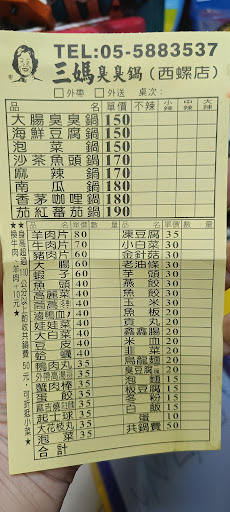 TEL:05-5883537
三媽臭臭鍋(西螺店)
□外帶 □外送 桌次:
品名 單價 不辣 小辣 中辣 大辣
大腸臭臭鍋 150
海鮮豆腐鍋 150
泡菜鍋 150
沙茶魚頭鍋 170
麻辣鍋 170
南瓜鍋 180
香茅咖哩鍋 180
茄紅蕃茄鍋 190
品名 單價 數量 品名 單價 數量
羊肉片 80 凍豆腐 35
牛肉片 70 小白菜 30
豬肉片 60 金針菇 30
大腸 60 老油條 30
蝦子 60 芋頭 30
魚頭 50 燕餃 30
高麗菜 40 魚餃 30
40 玉米 30
滷鴨血 40 魚板 20
娃娃菜 40 貢丸 20
大白菜 40 鑫鑫腸 20
豆皮 40 米血 20
蛤蠣 40 韭菜 20
鴨肉丸 35 烏龍麵 20
35 臭豆腐 20
蟹肉棒 35 泡麵 15
蛋餃 35 板豆腐 15
35 冬粉 15
起士球 35 白飯 15
大花枝丸 35 蛋 10
泡菜 35 共鍋費 50
合計